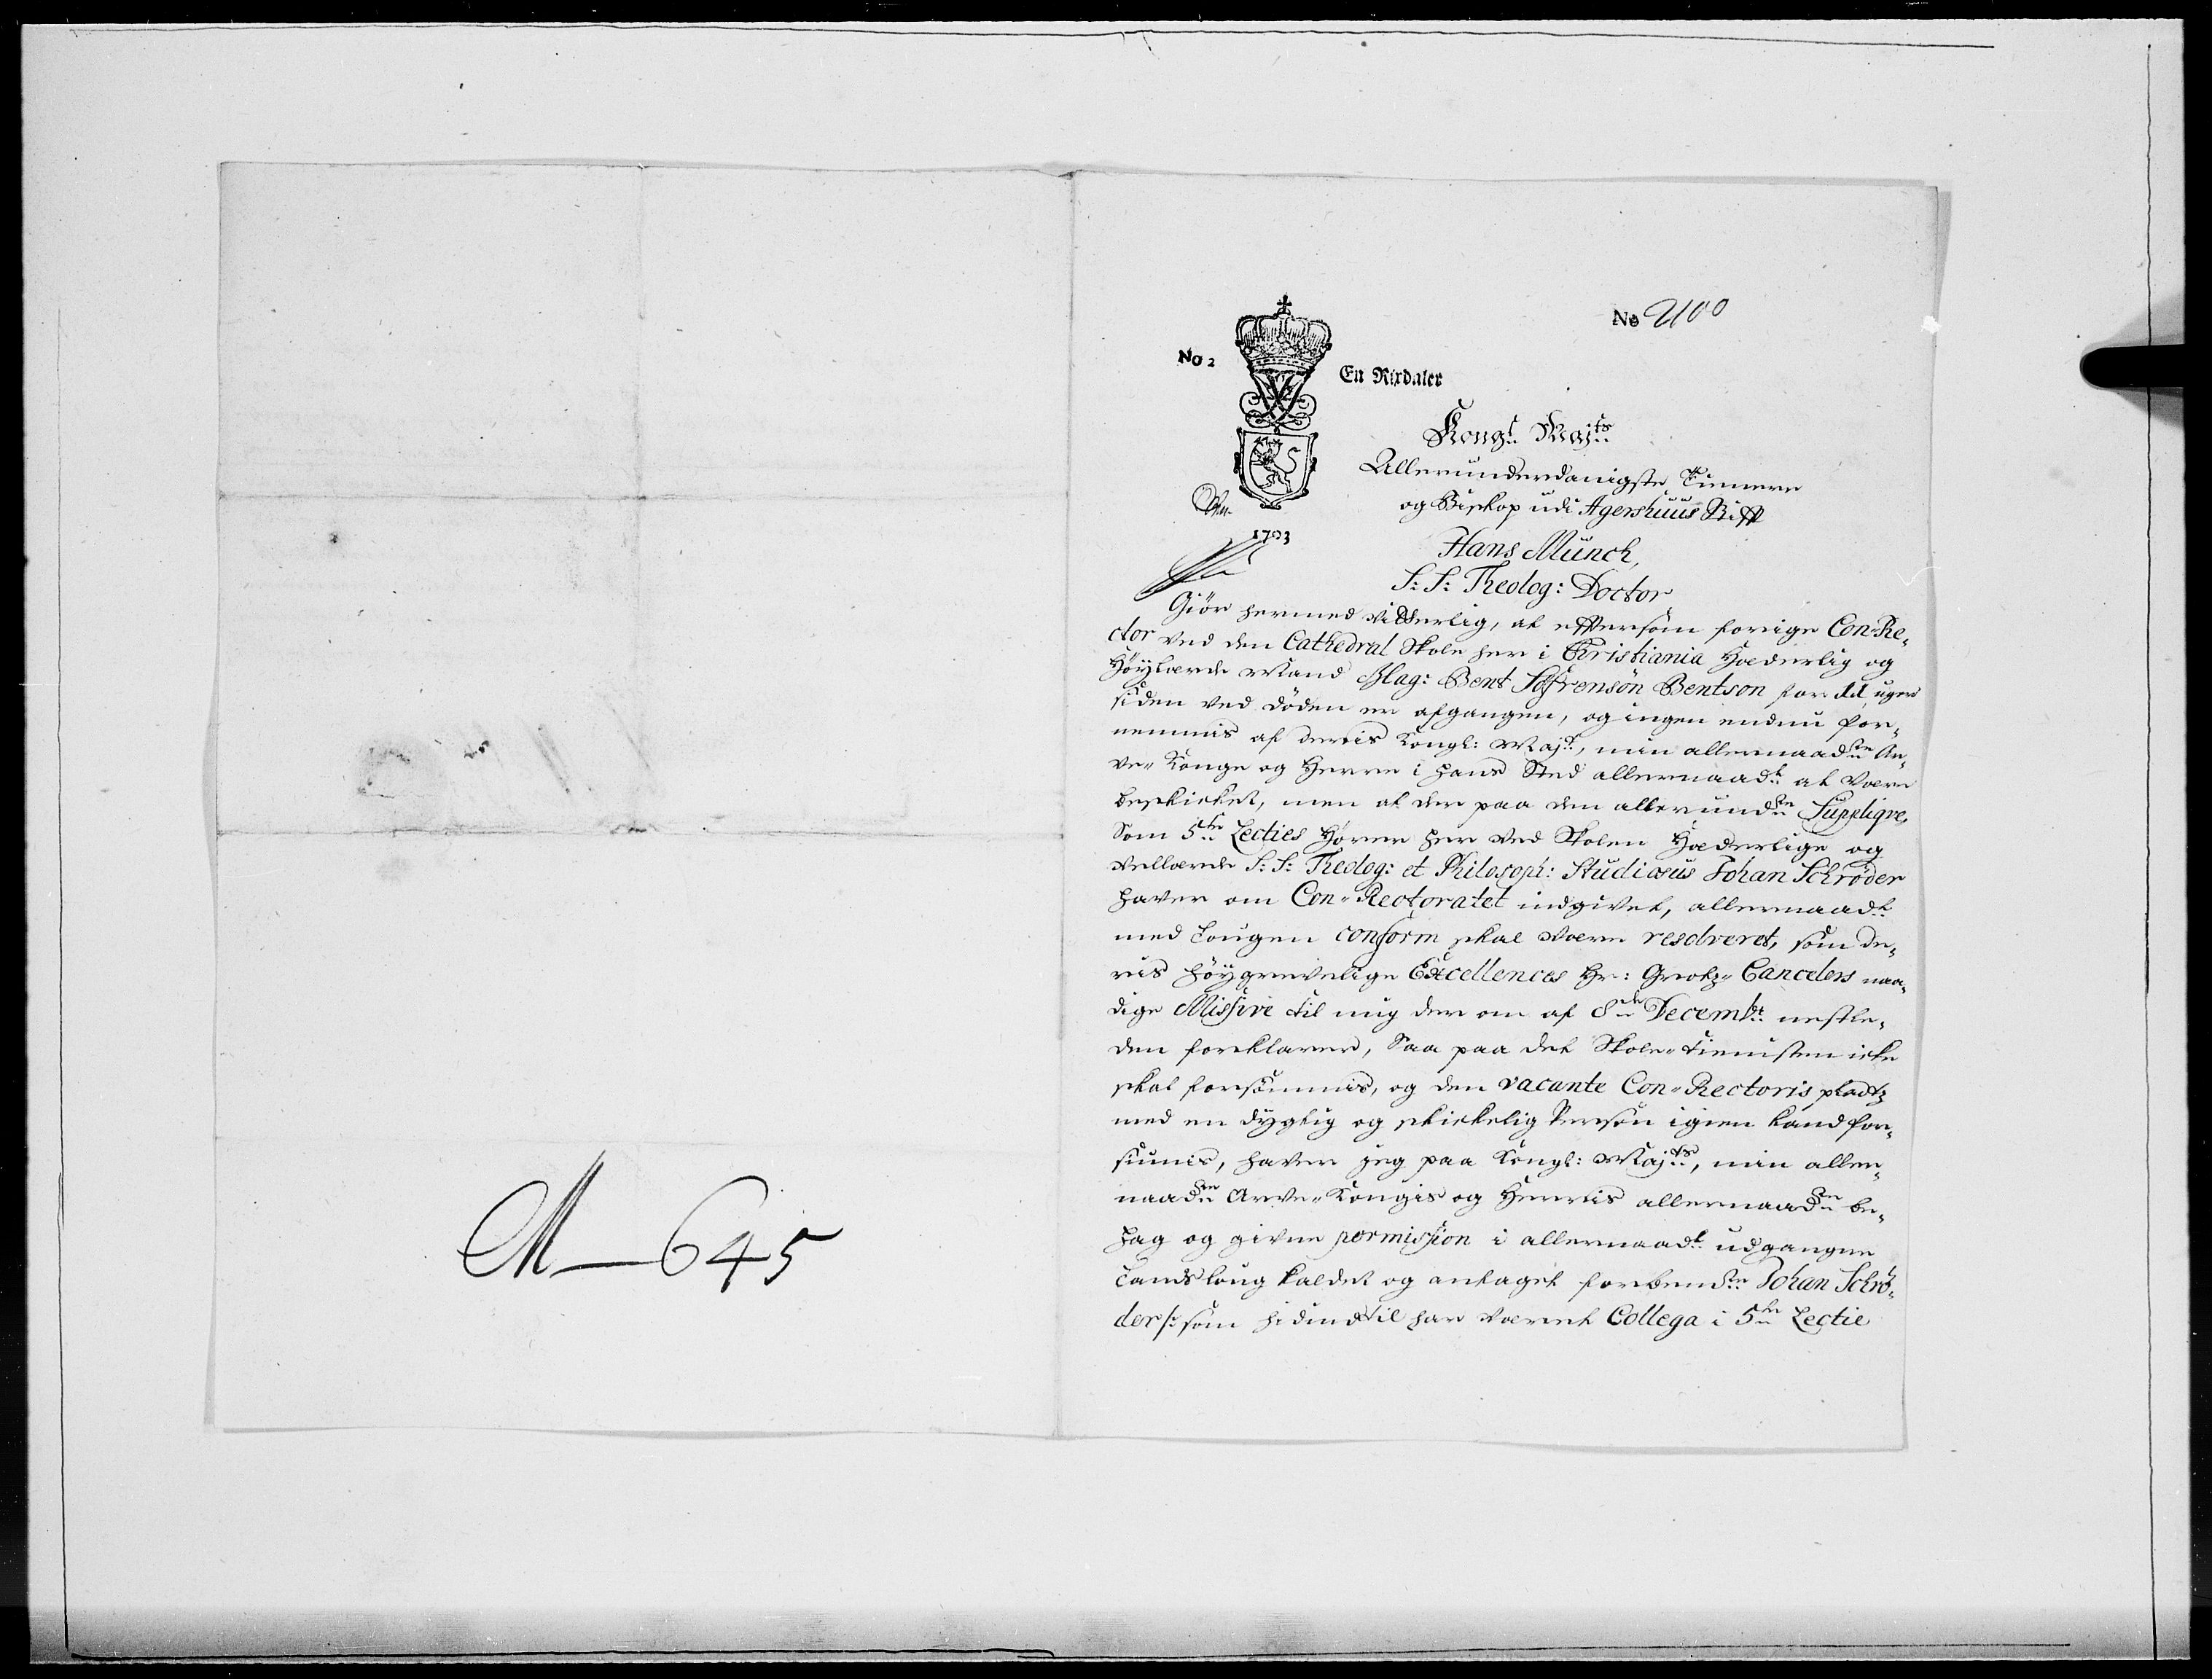 No 2100
No 2
En Rixdaler
1703
Kongl. Majts
Allerunderdanigste Tienere
og Biskop udi Agershuus Stift
Hans Munch,
S: S: Theolog: Doctor
Giör hermed vitterlig, at eftersom forige Con-Re-
ctor ved den Cathedral Skole her i Christiania Hæderlig og
Höylærde Mand Mag: Bent Söfrensön Bentson for uger
siden ved döden er afgangen, og ingen endnu for-
nemmis af deris Kongl: Majt, min allernaadste Ar-
ve- Konge og Herre i hans Sted allernaadt at være
beskicket, men at der paa den allerundste Supliqve,
Som 5te Lecties Hörer her ved Skolen Hæderlige og
vellærde S: S: Theolog: et Philosoph: Studiosus Johan Schröder
haver om Con-Rectoratet indgivet, allernaadt
med Lougen conform skal være resolveret, som de-
ris höygrevelige Excellences Hr: Grotz- Cancelers naa-
dige Missive til mig der om af 8de Decembr nestle-
den forklarer, Saa paa det Skole-tienisten icke
skal forsömmis, og den vacante Con-Rectoris pladtz
med en dygtig og skickelig Person igien kand for-
siunis, haver jeg paa Kongl: Majts, min aller-
naadste Arve-Kongis og Herris allernaadste be-
hag og givne permission i allernaadt udgangne
Lands loug kaldet og antaget forbemte Johan Schrö-
der /: som hidindtil har været Collega i 5te Lectie
M—645